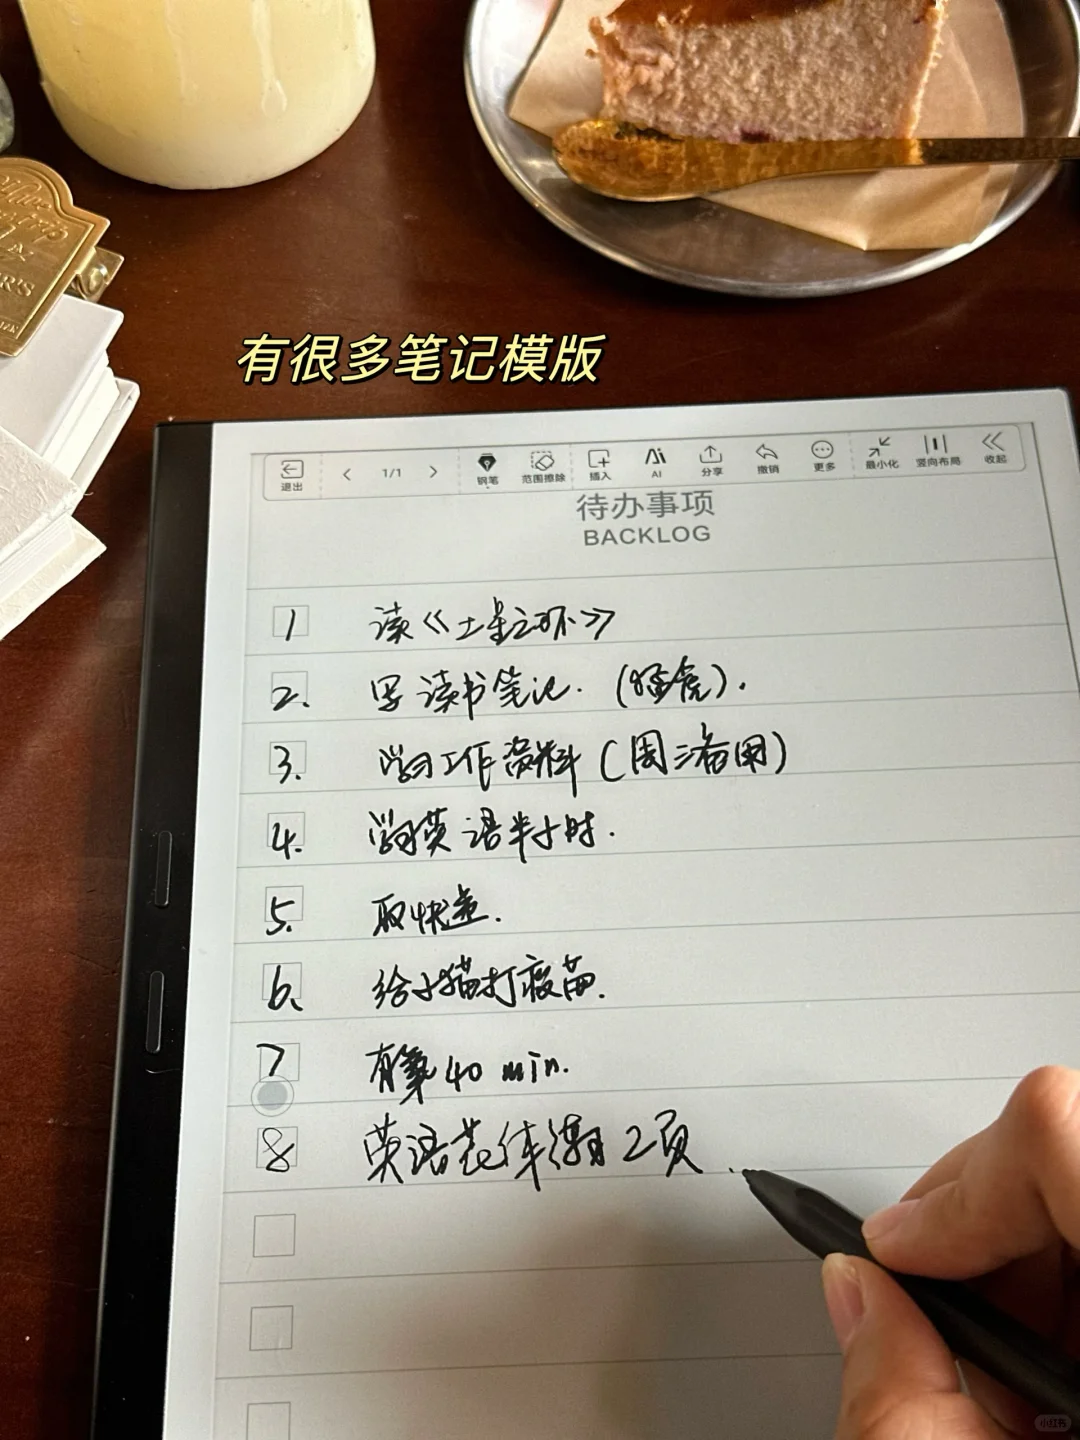 有很多笔记模版
退出 1/1 钢笔 范围擦除 插入 AI 分享 撤销 更多 最小化 竖向布局 收起
待办事项
BACKLOG
1 读《土星之环》
2. 写读书笔记. (猛虎).
3. 学习工作资料(周三备用)
4. 学习英语半小时.
5. 取快递.
6. 给小猫打疫苗.
7 有氧40 min.
8 英语花体练习2页.
小红书